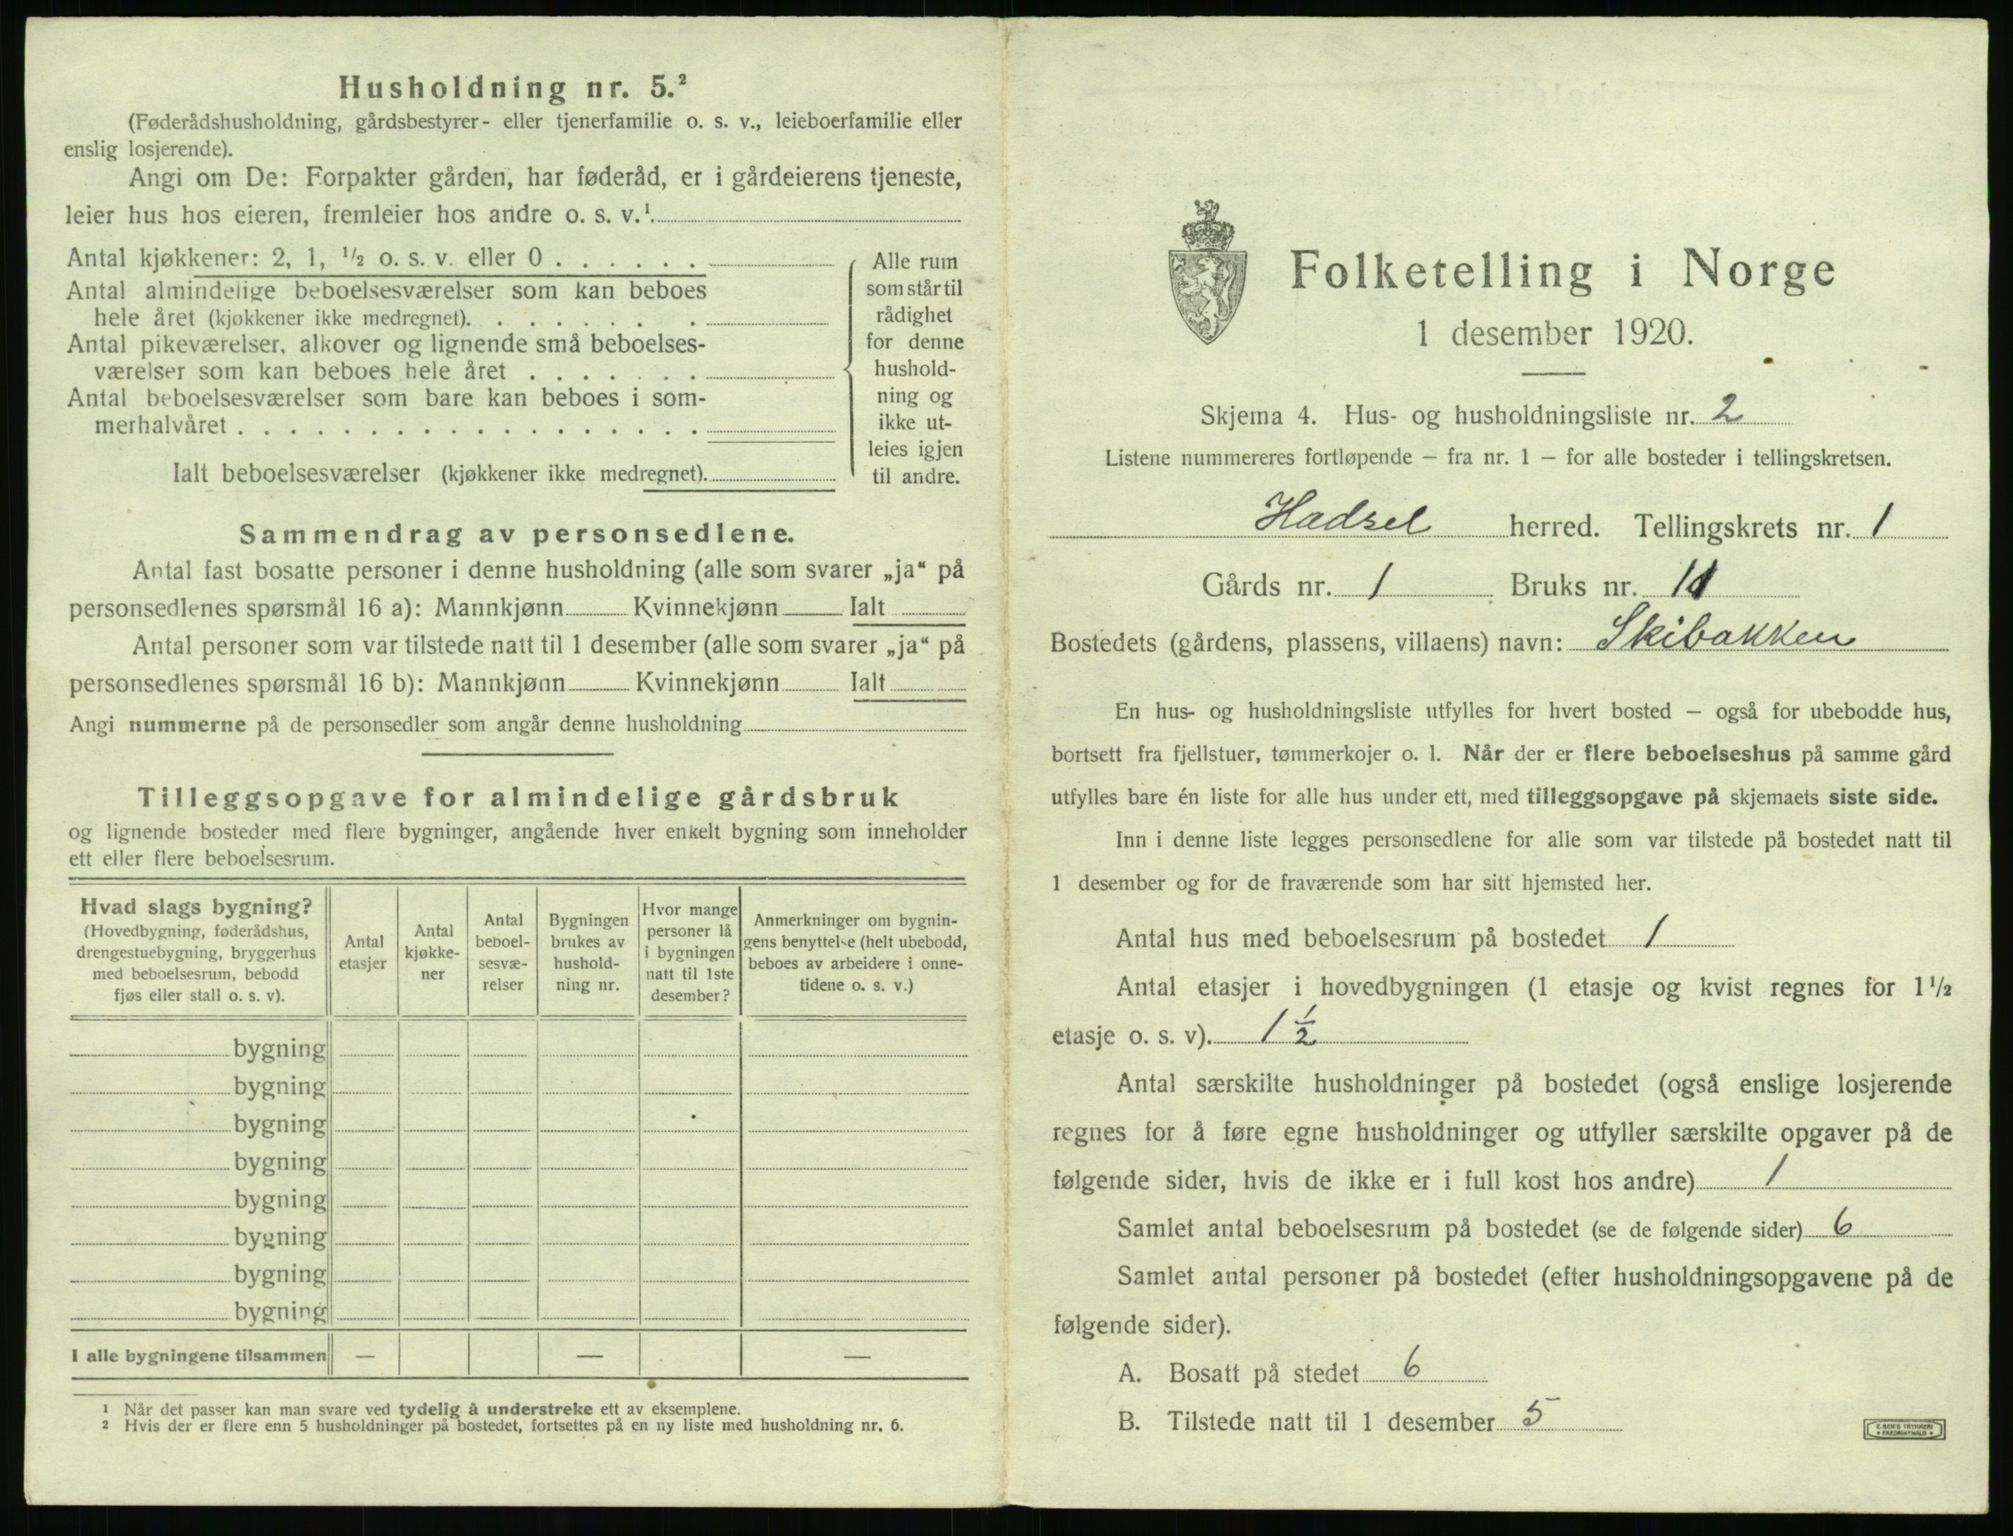 Husholdning nr. 5.²
(Føderådshusholdning, gårdsbestyrer- eller tjenerfamilie o. s. v., leieboerfamilie eller
enslig losjerende).
Angi om De: Forpakter gården, har føderåd, er i gårdeierens tjeneste,
leier hus hos eieren, fremleier hos andre o. s. v.¹
Antal kjøkkener: 2, 1, ½ o. s. v. eller 0 . . . . . .
Antal almindelige beboelsesværelser som kan beboes
hele året (kjøkkener ikke medregnet). . . . . . . . .
Antal pikeværelser, alkover og lignende små beboelses-
værelser som kan beboes hele året . . . . . . .
Antal beboelsesværelser som bare kan beboes i som-
merhalvåret . . . . . . . . . . . . . . . . . .
Ialt beboelsesværelser (kjøkkener ikke medregnet).
Alle rum
som står til
rådighet
for denne
hushold-
ning og
ikke ut-
leies igjen
til andre.
Sammendrag av personsedlene.
Antal fast bosatte personer i denne husholdning (alle som svarer „ja“ på
personsedlenes spørsmål 16 a): Mannkjønn Kvinnekjønn Ialt
Antal personer som var tilstede natt til 1 desember (alle som svarer „ja“ på
personsedlenes spørsmål 16 b): Mannkjønn Kvinnekjønn Ialt
Angi nummerne på de personsedler som angår denne husholdning
Tilleggsopgave for almindelige gårdsbruk
og lignende bosteder med flere bygninger, angående hver enkelt bygning som inneholder
ett eller flere beboelsesrum.
Hvad slags bygning?
(Hovedbygning, føderådshus,
drengestuebygning, bryggerhus
med beboelsesrum, bebodd
fjøs eller stall o. s. v).
Antal
etasjer
Antal
kjøkke-
ner
Antal
beboel-
sesvæ-
relser
Bygningen
brukes av
hushold-
ning nr.
Hvor mange
personer lå
i bygningen
natt til 1ste
desember?
Anmerkninger om bygnin-
gens benyttelse (helt ubebodd,
beboes av arbeidere i onne-
tidene o. s. v.)
bygning
bygning
bygning
bygning
bygning
bygning
bygning
bygning
I alle bygningene tilsammen — — —
¹ Når det passer kan man svare ved tydelig å understreke ett av eksemplene.
² Hvis der er flere enn 5 husholdninger på bostedet, fortsettes på en ny liste med husholdning nr. 6.
Folketelling i Norge
1 desember 1920.
Skjema 4. Hus- og husholdningsliste nr. 2
Listene nummereres fortløpende – fra nr. 1 – for alle bosteder i tellingskretsen.
Hadsel herred. Tellingskrets nr. 1
Gårds nr. 1 Bruks nr. 11
Bostedets (gårdens, plassens, villaens) navn: Skibakken
En hus- og husholdningsliste utfylles for hvert bosted – også for ubebodde hus,
bortsett fra fjellstuer, tømmerkojer o. l. Når der er flere beboelseshus på samme gård
utfylles bare én liste for alle hus under ett, med tilleggsopgave på skjemaets siste side.
Inn i denne liste legges personsedlene for alle som var tilstede på bostedet natt til
1 desember og for de fraværende som har sitt hjemsted her.
Antal hus med beboelsesrum på bostedet 1
Antal etasjer i hovedbygningen (1 etasje og kvist regnes for 1½
etasje o. s. v). 1½
Antal særskilte husholdninger på bostedet (også enslige losjerende
regnes for å føre egne husholdninger og utfyller særskilte opgaver på de
følgende sider, hvis de ikke er i full kost hos andre) 1
Samlet antal beboelsesrum på bostedet (se de følgende sider) 6
Samlet antal personer på bostedet (efter husholdningsopgavene på de
følgende sider).
A. Bosatt på stedet 6
B. Tilstede natt til 1 desember 5